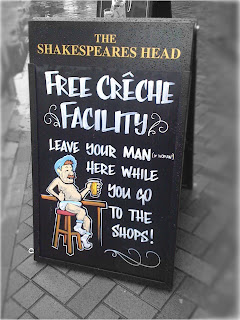 THE
SHAKESPEARES HEAD
FREE CRÊCHE
FACILITY
LEAVE YOUR MAN (OR WOMAN!)
HERE WHILE
YOU GO
TO THE
SHOPS!